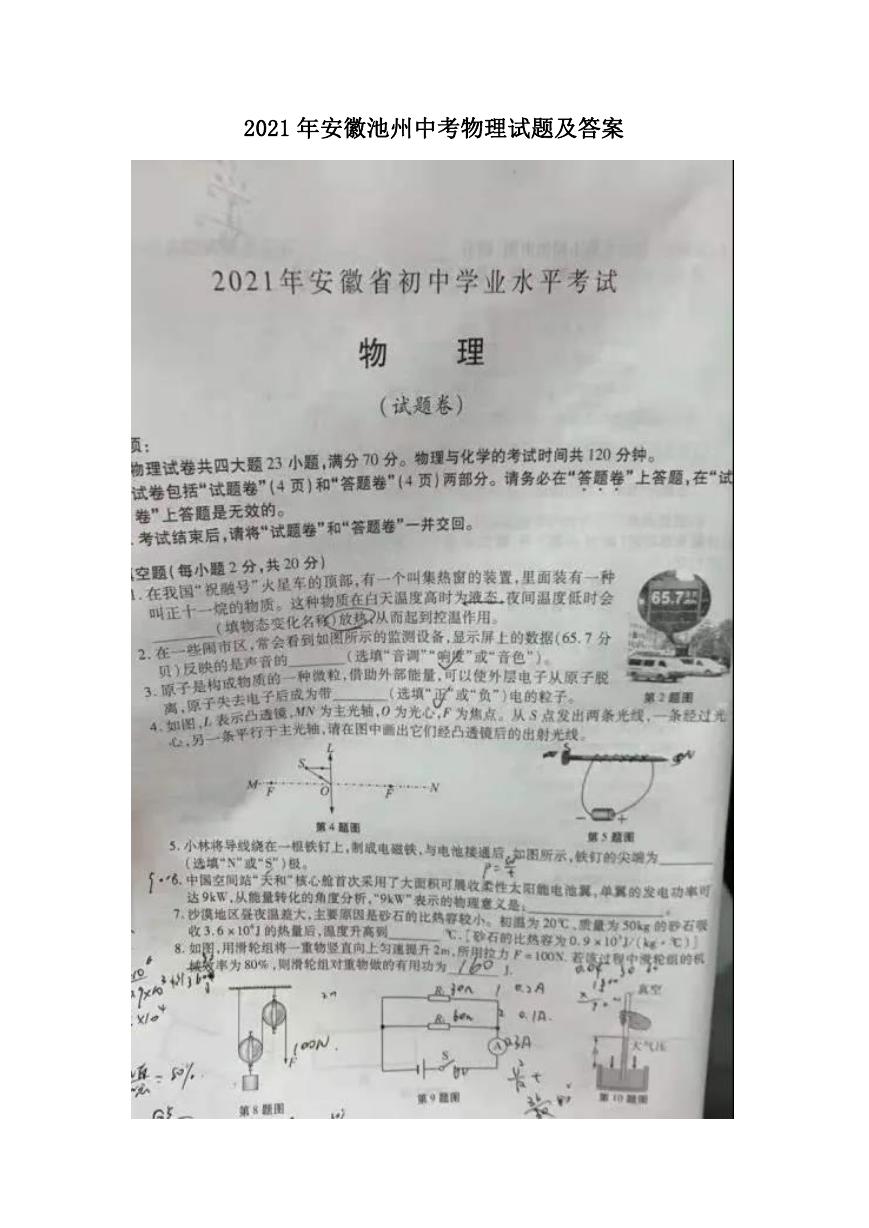 2021 年安徽池州中考物理试题及答案
2021年安徽省初中学业水平考试
物 理
(试题卷)
项:
物理试卷共四大题 23 小题,满分 70 分。物理与化学的考试时间共 120 分钟。
试卷包括“试题卷”(4 页)和“答题卷”(4 页)两部分。请务必在“答题卷”上答题,在“试
卷”上答题是无效的。
考试结束后,请将“试题卷”和“答题卷”一并交回。
空题(每小题 2 分,共 20 分)
1. 在我国“祝融号”火星车的顶部,有一个叫集热窗的装置,里面装有一种
叫正十一烷的物质。这种物质在白天温度高时为液态,夜间温度低时会
(填物态变化名称)放热,从而起到控温作用。
65.7
2. 在一些闹市区,常会看到如图所示的监测设备,显示屏上的数据(65.7 分
贝)反映的是声音的 (选填“音调”“响度”或“音色”)。
3. 原子是构成物质的一种微粒,借助外部能量,可以使外层电子从原子脱
离,原子失去电子后成为带 (选填“正”或“负”)电的粒子。
第 2 题图
4. 如图,L 表示凸透镜,MN 为主光轴,O 为光心,F 为焦点。从 S 点发出两条光线,一条经过光
心,另一条平行于主光轴,请在图中画出它们经凸透镜后的出射光线。
L
S
M F O F N
S N
- +
第 4 题图
第 5 题图
5. 小林将导线绕在一根铁钉上,制成电磁铁,与电池接通后,如图所示,铁钉的尖端为
(选填“N”或“S”)极。
6. 中国空间站“天和”核心舱首次采用了大面积可展收柔性太阳能电池翼,单翼的发电功率可
达 9kW,从能量转化的角度分析,“9kW”表示的物理意义是: 。
7. 沙漠地区昼夜温差大,主要原因是砂石的比热容较小。初温为 20℃,质量为 50kg 的砂石吸
收 3.6×10⁵J 的热量后,温度升高到 ℃。[砂石的比热容为 0.9×10³J/(kg·℃)]
8. 如图,用滑轮组将一重物竖直向上匀速提升 2m,所用拉力 F=100N。若该过程中滑轮组的机
械效率为 80%,则滑轮组对重物做的有用功为 160 J.
R₁ 30Ω 0.2A
R₂ 60Ω 0.1A
真空
100N
F
A 0.3A
大气压
S 6V
= 80%
第 8 题图
第 9 题图
第 10 题图